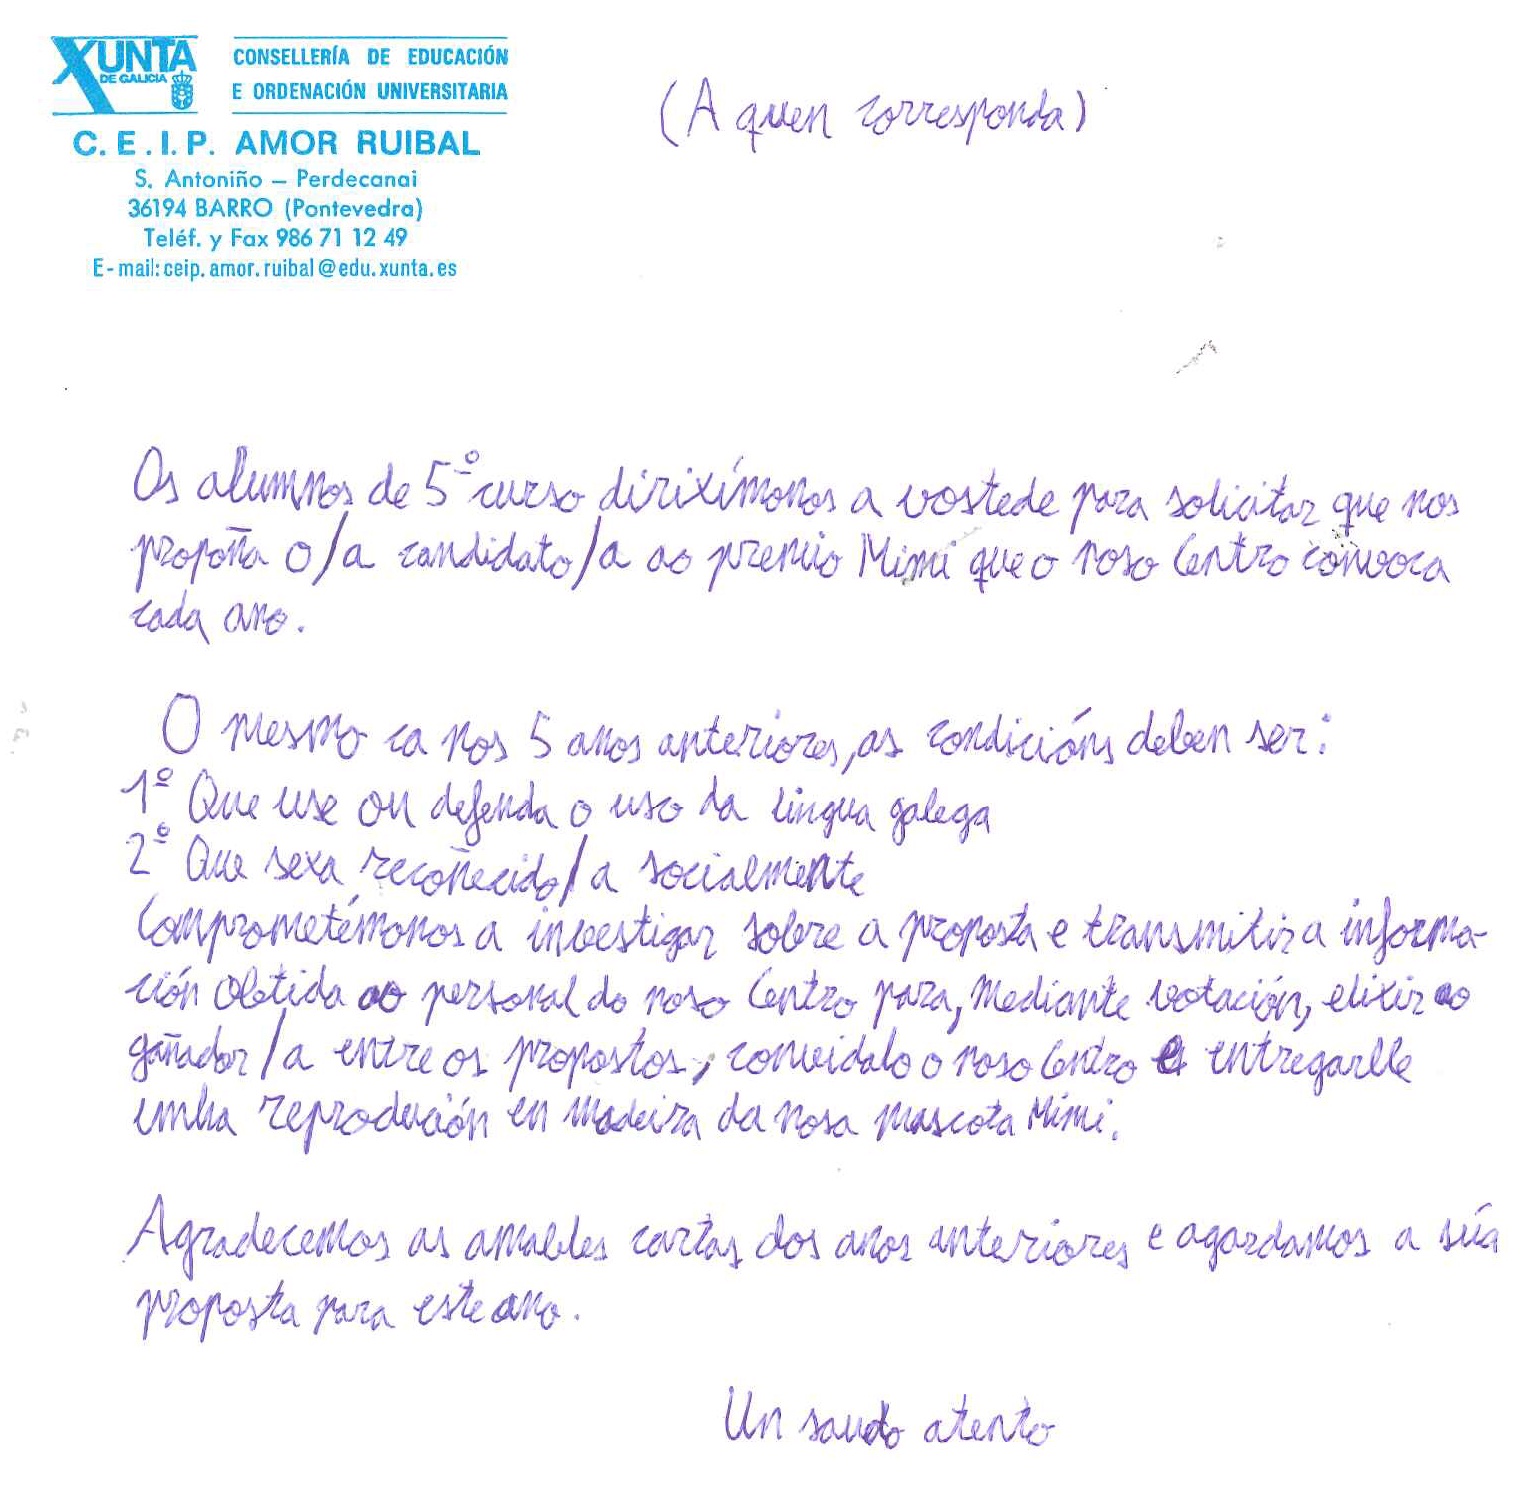 XUNTA
DE GALICIA
CONSELLERÍA DE EDUCACIÓN
E ORDENACIÓN UNIVERSITARIA
C.E.I.P. AMOR RUIBAL
S. Antoniño – Perdecanai
36194 BARRO (Pontevedra)
Teléf. y Fax 986 71 12 49
E-mail: ceip.amor.ruibal@edu.xunta.es
(A quen corresponda)
Os alumnos de 5º curso dirixímonos a vostede para solicitar que nos
propoña o/a candidato/a ao premio Mimi que o noso Centro convoca
cada ano.
O mesmo ca nos 5 anos anteriores, as condicións deben ser:
1º Que use ou defenda o uso da lingua galega
2º Que sexa recoñecido/a socialmente
Comprometémonos a investigar sobre a proposta e transmitir a informa-
ción obtida ao persoal do noso Centro para, mediante votación, elixir ao
gañador/a entre os propostos, convidalo o noso Centro e entregarlle
unha reprodución en madeira da nosa mascota Mimi.
Agradecemos as amables cartas dos anos anteriores e agardamos a súa
proposta para este ano.
Un saudo atento